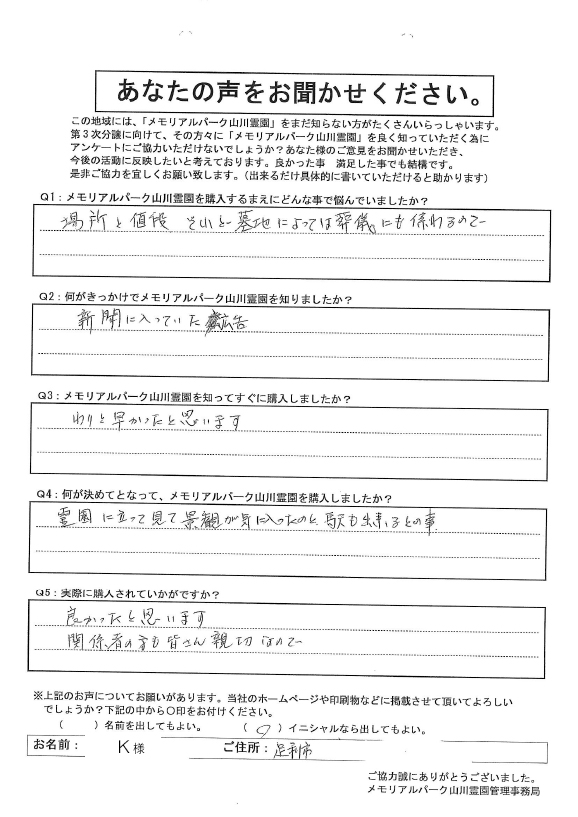 あなたの声をお聞かせください。
この地域には、「メモリアルパーク山川霊園」をまだ知らない方がたくさんいらっしゃいます。
第3次分譲に向けて、その方々に「メモリアルパーク山川霊園」を良く知っていただく為に
アンケートにご協力いただけないでしょうか？あなた様のご意見をお聞かせいただき、
今後の活動に反映したいと考えております。良かった事　満足した事でも結構です。
是非ご協力を宜しくお願い致します。（出来るだけ具体的に書いていただけると助かります）
Q1：メモリアルパーク山川霊園を購入するまえにどんな事で悩んでいましたか？
場所と値段　それと墓地によっては葬儀にも係わるので
Q2：何がきっかけでメモリアルパーク山川霊園を知りましたか？
新聞に入っていた広告
Q3：メモリアルパーク山川霊園を知ってすぐに購入しましたか？
わりと早かったと思います
Q4：何が決めてとなって、メモリアルパーク山川霊園を購入しましたか？
霊園に立って見て景観が気に入ったのと　も出来るとの事
Q5：実際に購入されていかがですか？
良かったと思います
関係者の方も皆さん親切なので
※上記のお声についてお願いがあります。当社のホームページや印刷物などに掲載させて頂いてよろしい
でしょうか？下記の中から〇印をお付けください。
（　　）名前を出してもよい。　（〇）イニシャルなら出してもよい。
お名前：　K様　ご住所：足利市
ご協力誠にありがとうございました。
メモリアルパーク山川霊園管理事務局